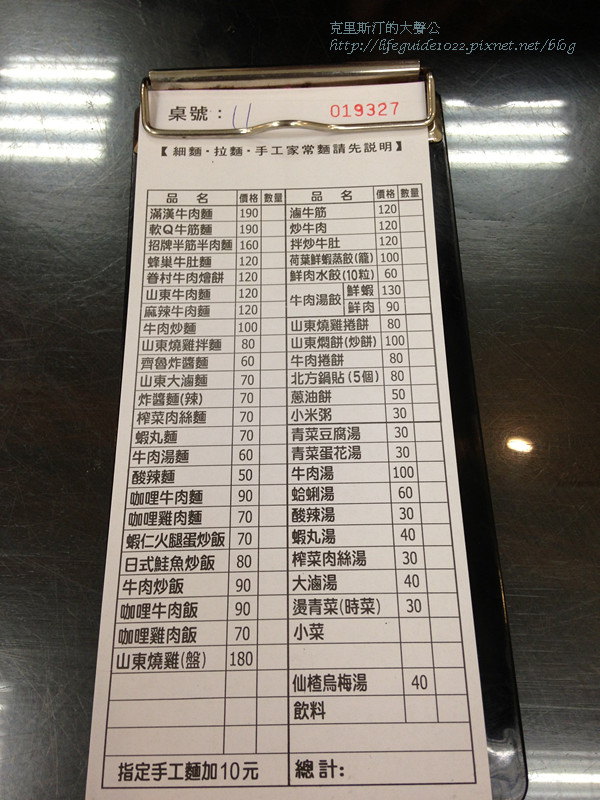 克里斯汀的大聲公
http://lifeguide1022.pixnet.net/blog
桌號：11
019327
【細麵・拉麵・手工家常麵請先説明】
品名 價格 數量
滿漢牛肉麵 190
軟Q牛筋麵 190
招牌半筋半肉麵 160
蜂巢牛肚麵 120
眷村牛肉燴餅 120
山東牛肉麵 120
麻辣牛肉麵 120
牛肉炒麵 100
山東燒雞拌麵 80
齊魯炸醬麵 60
山東大滷麵 70
炸醬麵(辣) 70
榨菜肉絲麵 70
蝦丸麵 70
牛肉湯麵 60
酸辣麵 50
咖哩牛肉麵 90
咖哩雞肉麵 70
蝦仁火腿蛋炒飯 70
日式鮭魚炒飯 80
牛肉炒飯 90
咖哩牛肉飯 90
咖哩雞肉飯 70
山東燒雞(盤) 180
指定手工麵加10元
品名 價格 數量
滷牛筋 120
炒牛肉 120
拌炒牛肚 120
荷葉鮮蝦蒸餃(籠) 100
鮮肉水餃(10粒) 60
牛肉湯餃 鮮蝦 130
鮮肉 90
山東燒雞捲餅 80
山東燜餅(炒餅) 100
牛肉捲餅 80
北方鍋貼(5個) 80
蔥油餅 50
小米粥 30
青菜豆腐湯 30
青菜蛋花湯 30
牛肉湯 100
蛤蜊湯 60
酸辣湯 30
蝦丸湯 40
榨菜肉絲湯 30
大滷湯 40
燙青菜(時菜) 30
小菜
仙楂烏梅湯 40
飲料
總計: